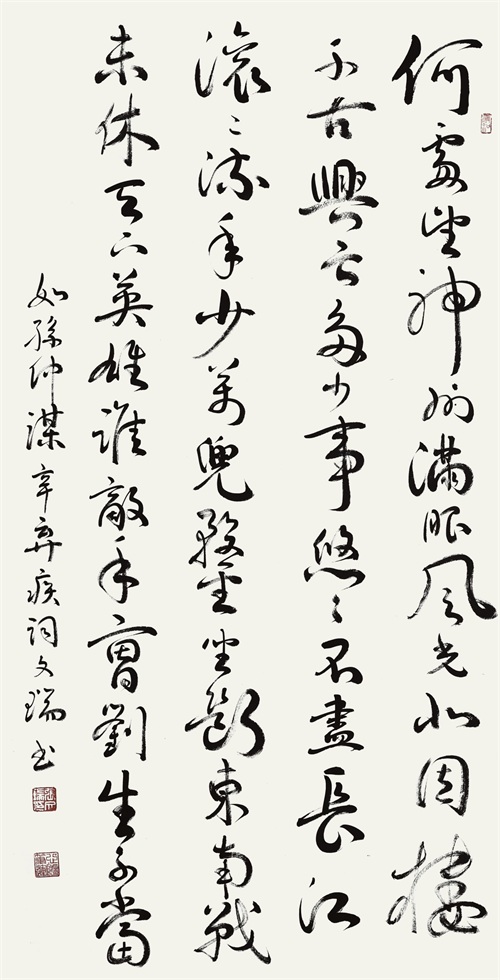 何處望神州滿眼風光北固樓
千古興亡多少事悠〻不盡長江
滾〻流年少萬兜鍪坐斷東南戰
未休天下英雄誰敵手曹劉生子當
如孫仲謀辛弃疾詞文瑞书